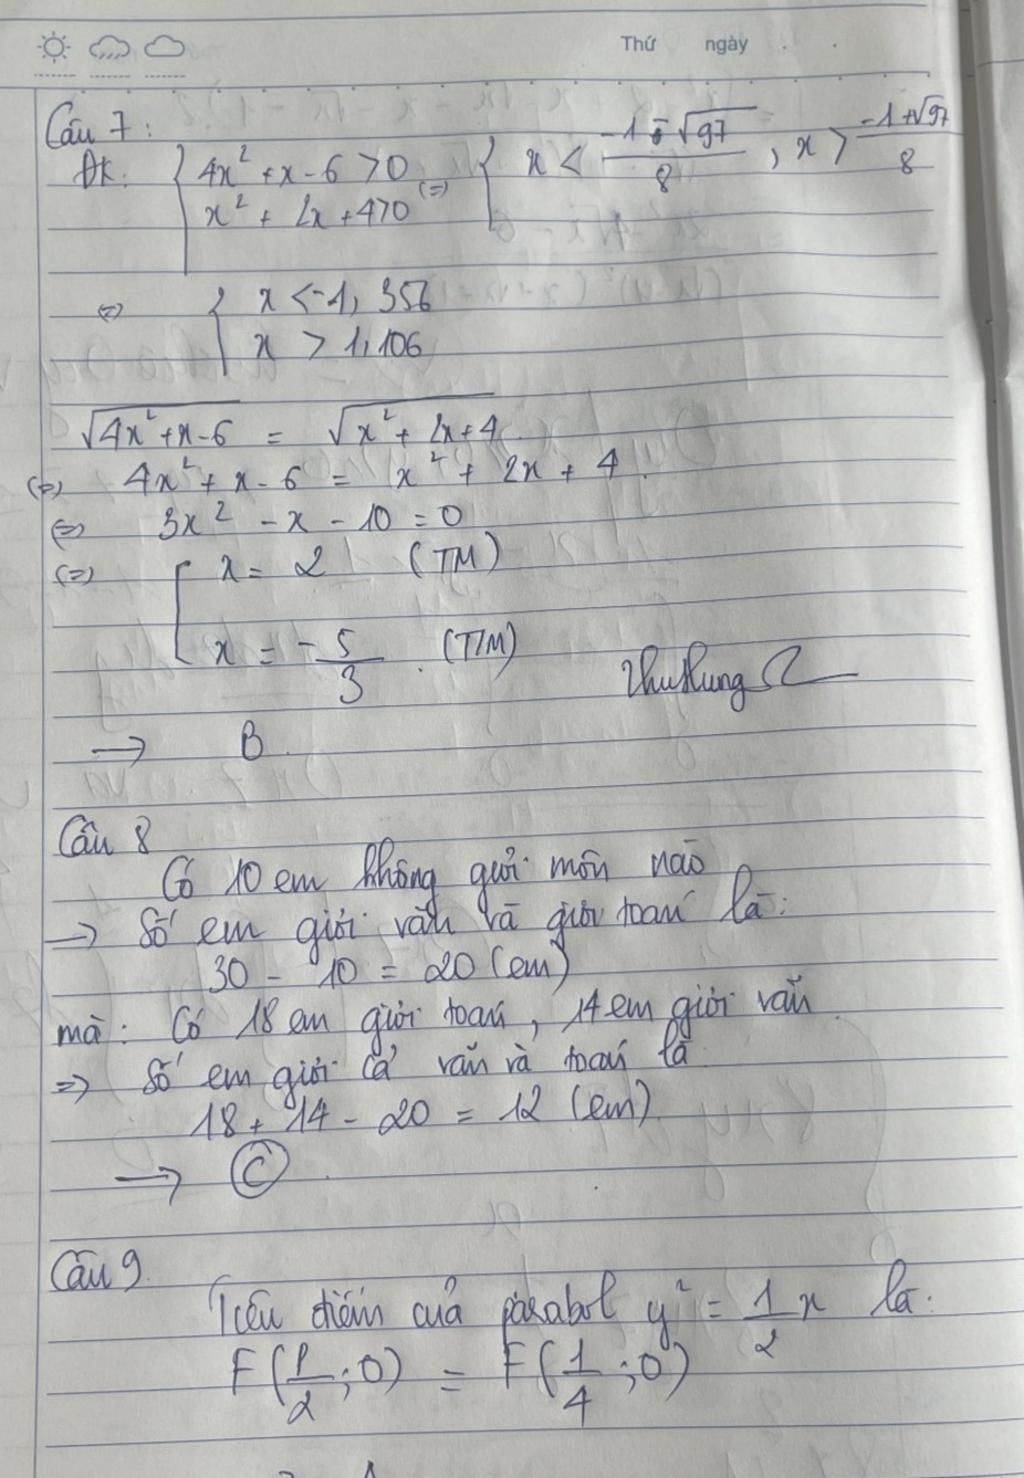 Thứ ngày
Câu 7:
ĐK: { 4x² + x - 6 > 0 (=) { x < (-1 - √97)/8 , x > (-1 + √97)/8
x² + 2x + 4 > 0
(=) { x < -1,356
x > 1,106
√(4x² + x - 6) = √(x² + 2x + 4)
(=) 4x² + x - 6 = x² + 2x + 4.
(=) 3x² - x - 10 = 0
(=) [ x = 2 (TM)
x = -5/3 . (TM)
→ B.
Câu 8
Có 10 em không giỏi môn nào
→ Số em giỏi văn và giỏi toán là:
30 - 10 = 20 (em)
mà: Có 18 em giỏi toán, 14 em giỏi văn.
=> Số em giỏi cả văn và toán là
18 + 14 - 20 = 12 (em)
→ C.
Câu 9.
Tiêu điểm của parabol y² = 1/2 x là:
F(p/2; 0) = F(1/4; 0)